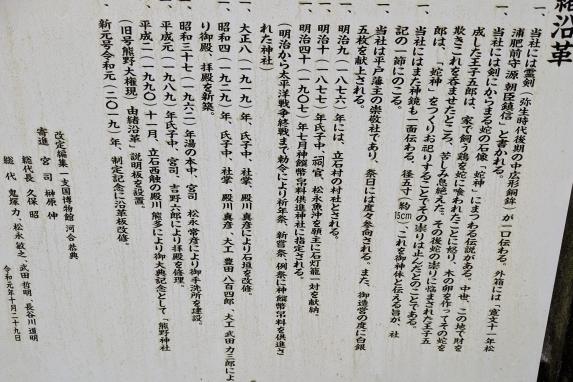 緒沿革
一、当社には霊剣(弥生時代後期の中広形銅鉾)が一口伝わる。外箱には「寛文十一年松
浦肥前守源朝臣鎮信」と書かれる。
一、当社には剣にからまる蛇の石像「蛇神」にまつわる伝説がある。中世、この地で財を
成した王子五郎は、家で飼う鶏を蛇に喰われたことに怒り、木の卵を作ってその蛇を
欺きこれを呑ませたところ、苦しみ息絶えた。その後蛇の祟りに悩まされた王子五
郎は、「蛇神」をつくりお祀りすることでその祟りは止んだとのことである。
一、当社にはまた神鏡も一面伝わる。径五寸(約15cm)、「これを御神体と伝える旨が、社
記の一節にのこる。
一、当社は平戸藩主の崇敬社であり、祭日には度々参向される。また、御造営の度に白銀
五枚を献上される。
一、明治九(一八七六)年には、立石村の村社とされる。
一、明治十(一八七七)年氏子中、祠官、松永魚沖を願主に石灯籠一対を献納。
一、明治四十(一九〇七)年七月神饌幣帛料供進神社に指定される。
(明治から太平洋戦争終戦まで勅令により祈年祭、新嘗祭、例祭に神饌幣帛料を供進さ
れた神社)
一、大正八(一九一九)年、氏子中、社掌、殿川真彦により石垣を改修。
一、昭和四(一九二九)年、氏子中、社掌、殿川真彦・大工 豊田八百四郎「大工 武田力三郎によ
り御殿、拝殿を新築。
一、昭和三十七(一九六二)年湯の本中、宮司 松永常彦により御手洗所を建設。
一、平成元(一九八九)年氏子中、宮司、吉野六郎により拝殿を修理。
一、平成二(一九九〇)十一月、立石西触の殿川熊多により御大典記念として「熊野神社
(旧号熊野大権現)由緒沿革」説明板を設置。
一、新元号令和元(二〇一九)年、制定記念に沿革板改修。
改定編集 一支国博物館 河合恭典
寄進 宮司 榊原伸
総代長 久保昭 長谷川道明
総代 鬼塚力、松永敏之、武田哲明
令和元年十月二十九日